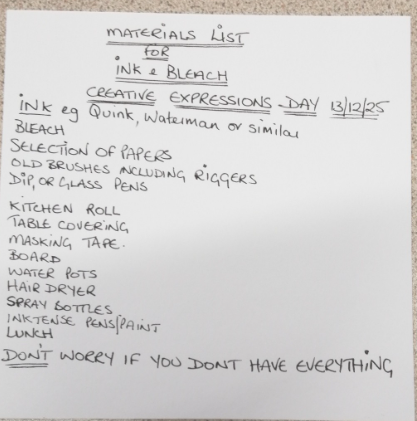 MATERIALS LIST
FOR
INK & BLEACH
CREATIVE EXPRESSIONS DAY 13/12/25
INK eg Quink, Waterman or similar
BLEACH
SELECTION OF PAPERS
OLD BRUSHES INCLUDING RIGGERS
DIP, OR GLASS PENS
KITCHEN ROLL
TABLE COVERING
MASKING TAPE.
BOARD
WATER POTS
HAIR DRYER
SPRAY BOTTLES
INKTENSE PENS/PAINT
LUNCH
DON'T WORRY IF YOU DONT HAVE EVERYTHING